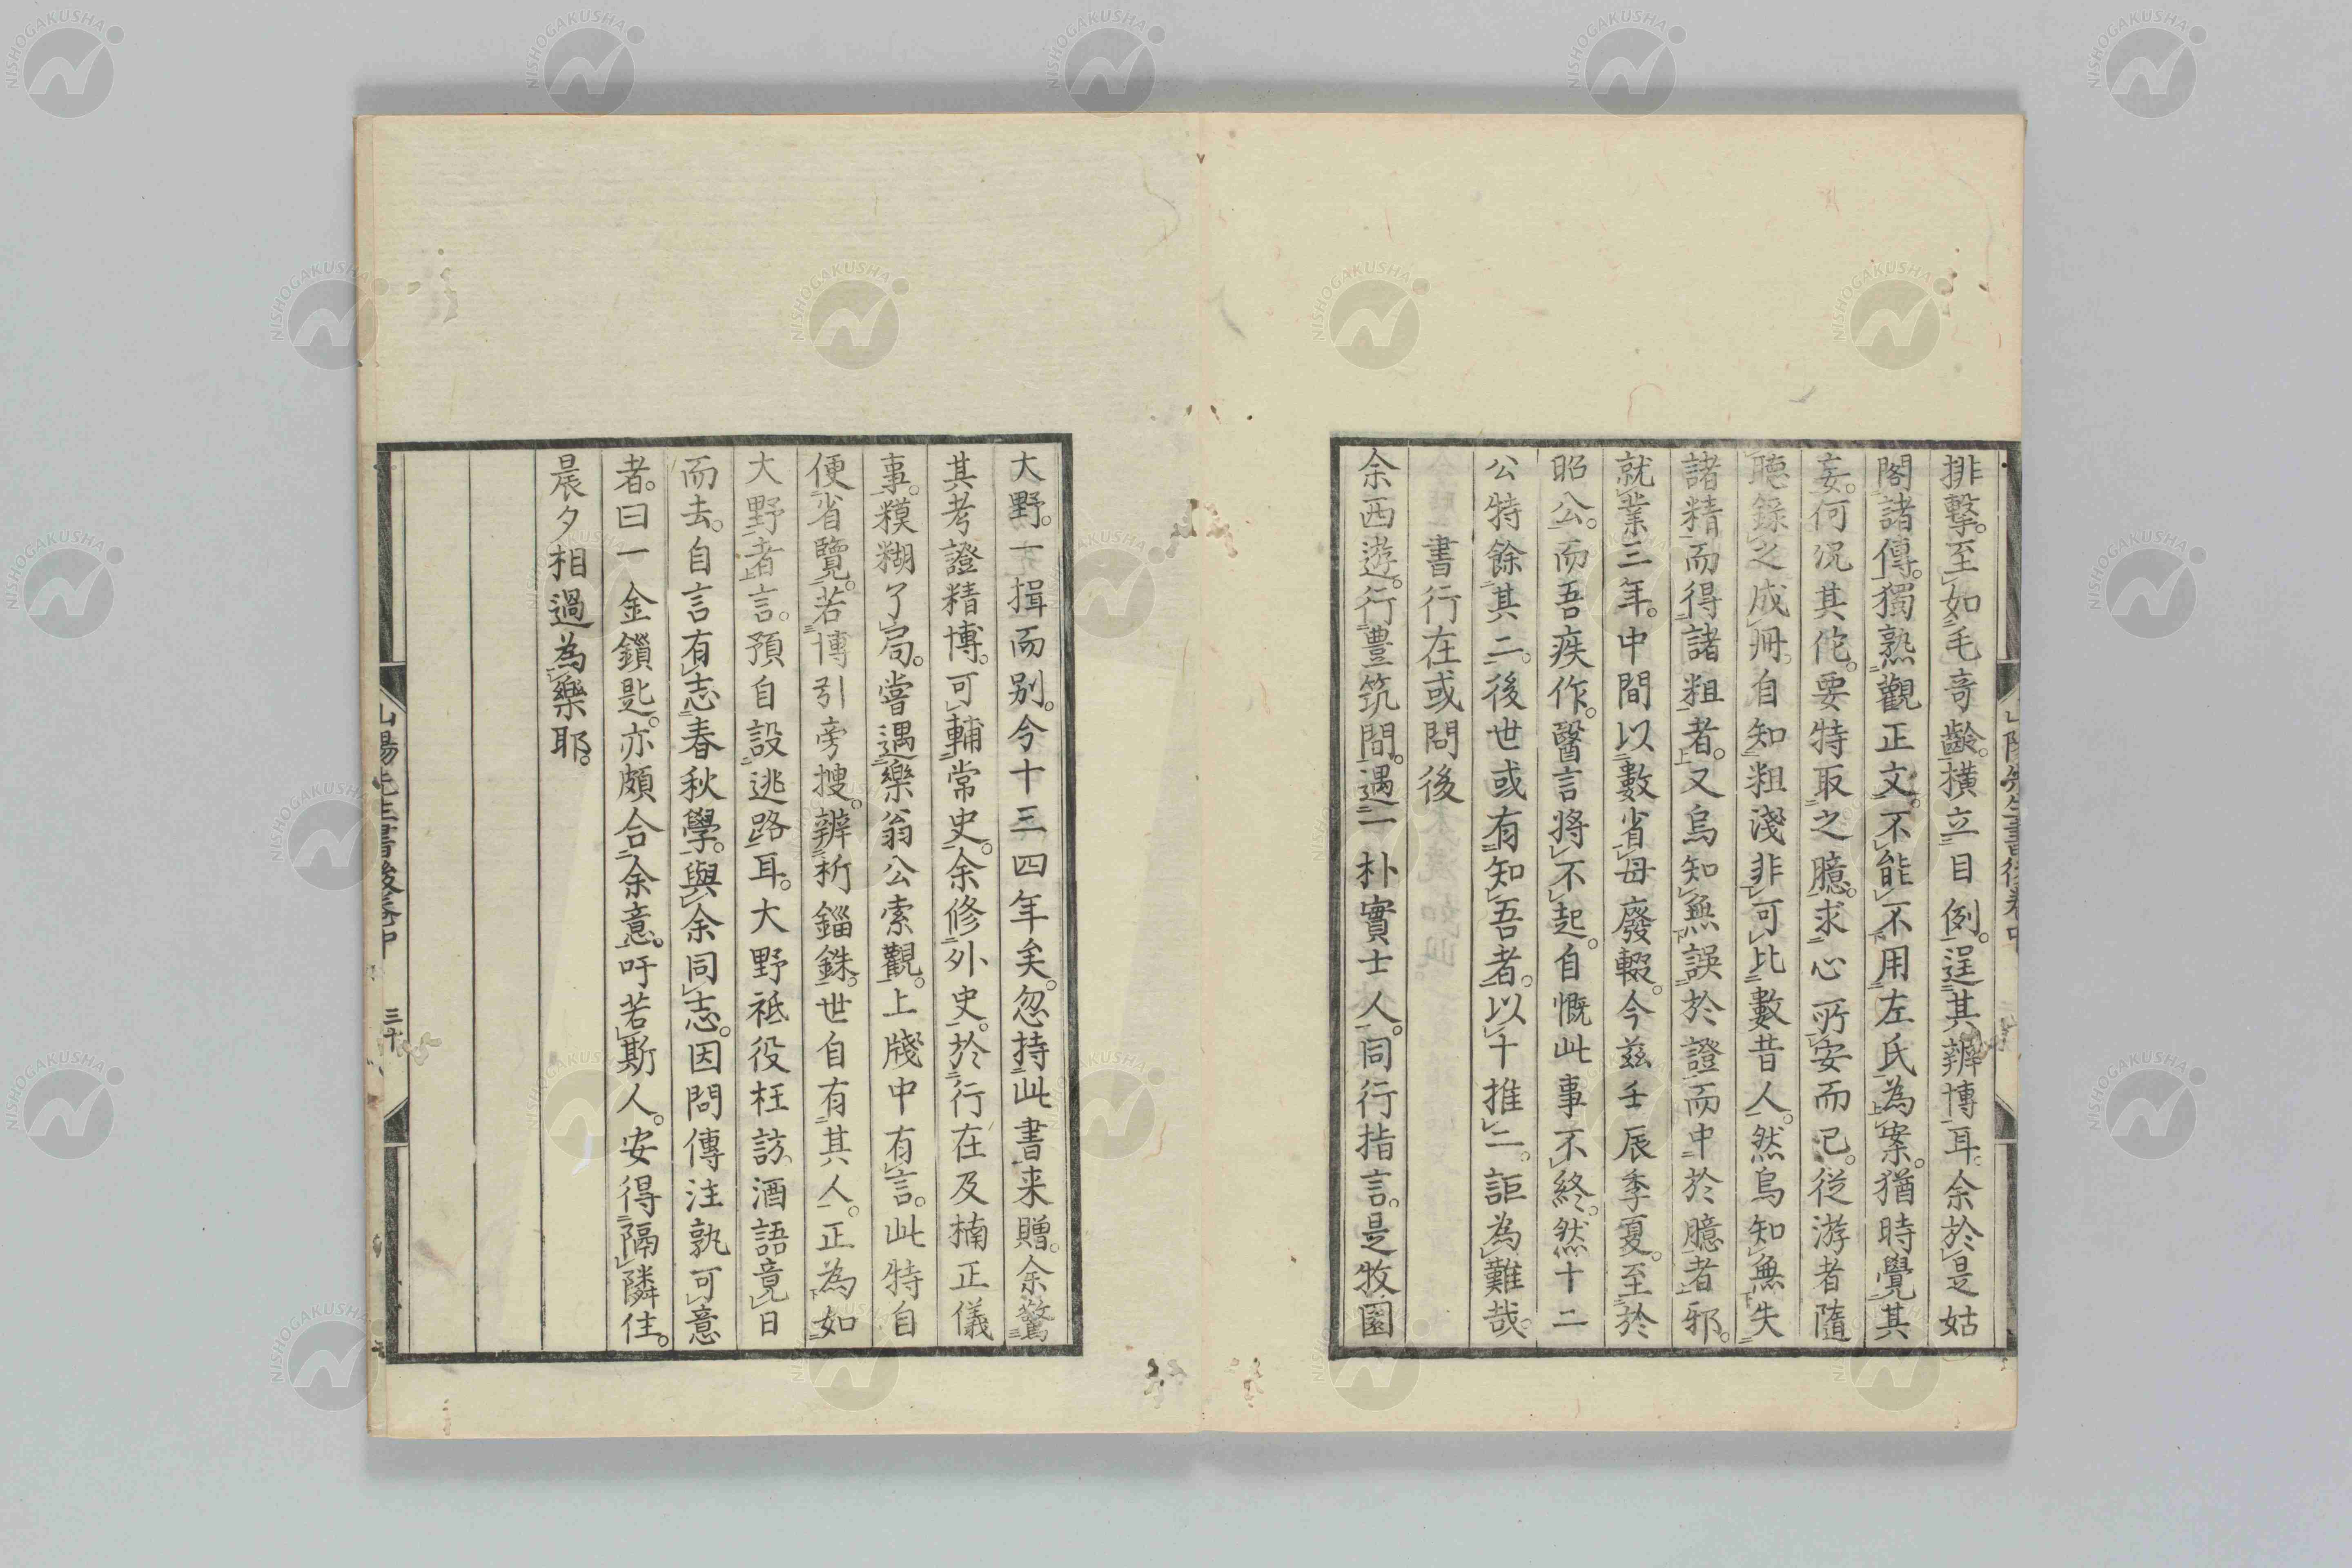 排擊。至如毛奇齡。橫立目例。逞其辨博耳。余於是姑
閣諸傳。獨熟觀正文。不能不用左氏為案。猶時覺其
妄。何況其佗。要特取之臆。求心所安而已。從游者隨
聽錄之成冊。自知粗淺非可比數昔人。然烏知無失
諸精而得諸粗者。又烏知無誤於證而中於臆者邪。
就業三年。中間以數省母廢輟。今茲壬辰季夏。至於
昭公。而吾疾作。醫言將不起。自慨此事不終。然十二
公特餘其二。後世或有知吾者。以十推二。詎為難哉。
書行在或問後
余西遊。行豊筑間。遇一朴實士人。同行指言。是牧園
大野。一揖而别。今十三四年矣。忽持此書来贈。余驚
其考證精博。可輔常史。余修外史。於行在及楠正儀
事。糢糊了局。嘗遇樂翁公索觀。上牋中有言。此特自
便省覽。若博引旁捜。辨析錙銖。世自有其人。正為如
大野者言。預自設逃路耳。大野祗役枉訪。酒語竟日
而去。自言有志春秋學。與余同志。因問傳注孰可意
者。曰一金鎖匙。亦頗合余意。吁若斯人。安得隔隣住。
晨夕相過為樂耶。
山陽先生書後卷中
三十